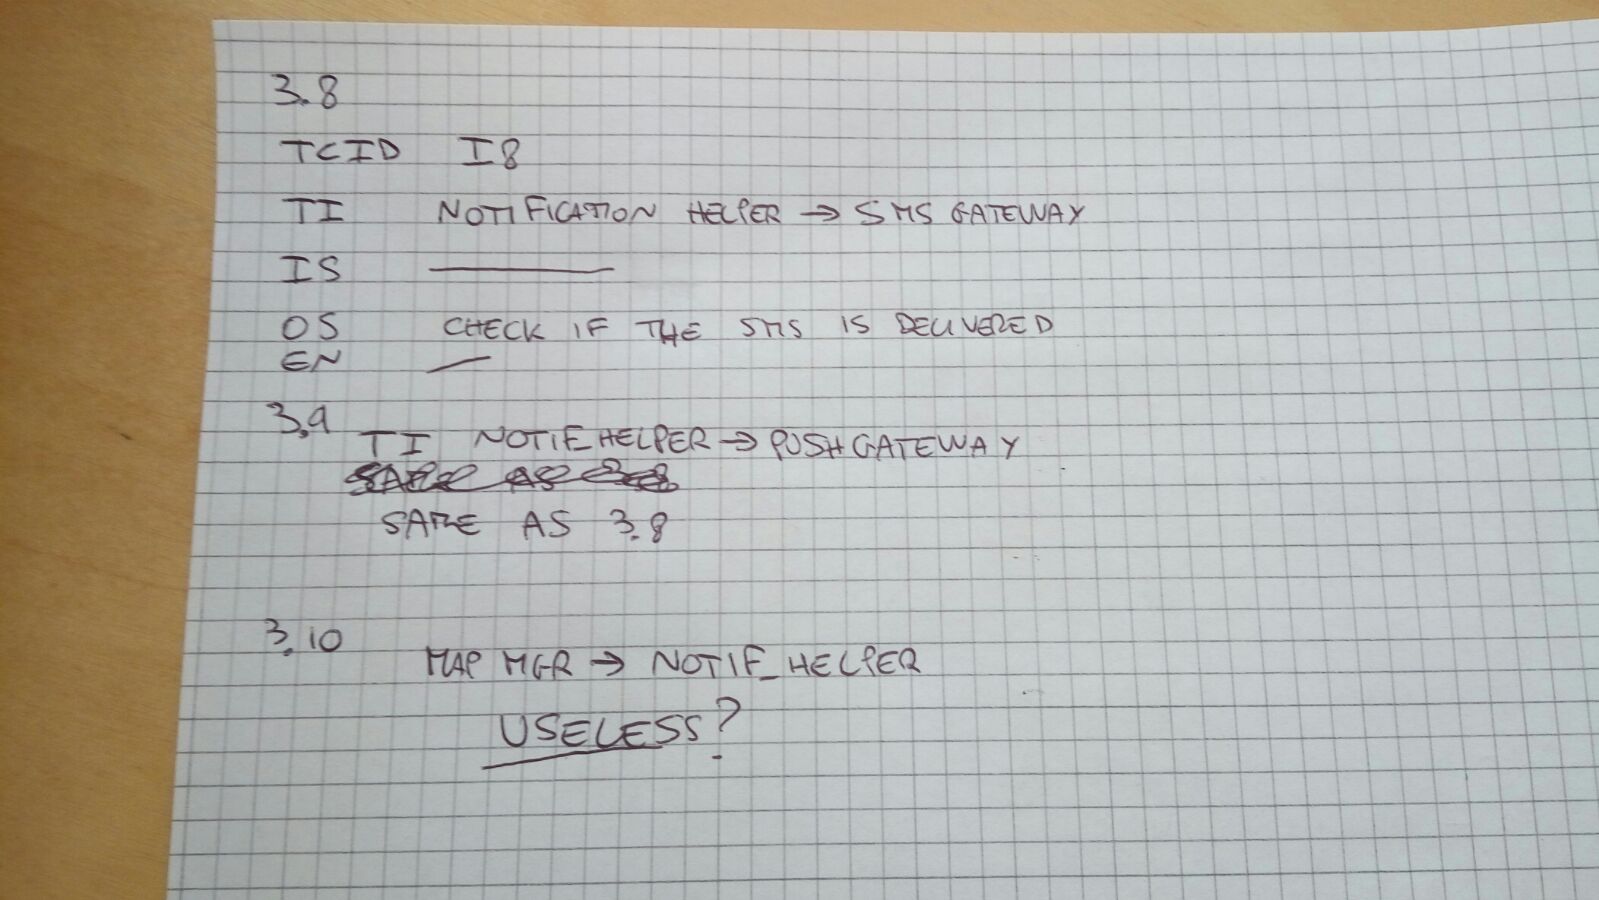 3.8
TCID I8
TI NOTIFICATION HELPER → SMS GATEWAY
IS ———
OS CHECK IF THE SMS IS DELIVERED
EN —
3.9
TI NOTIF HELPER → PUSH GATEWAY
SAME AS 3.8
SAME AS 3.8
3.10
MAP MGR → NOTIF_HELPER
USELESS?